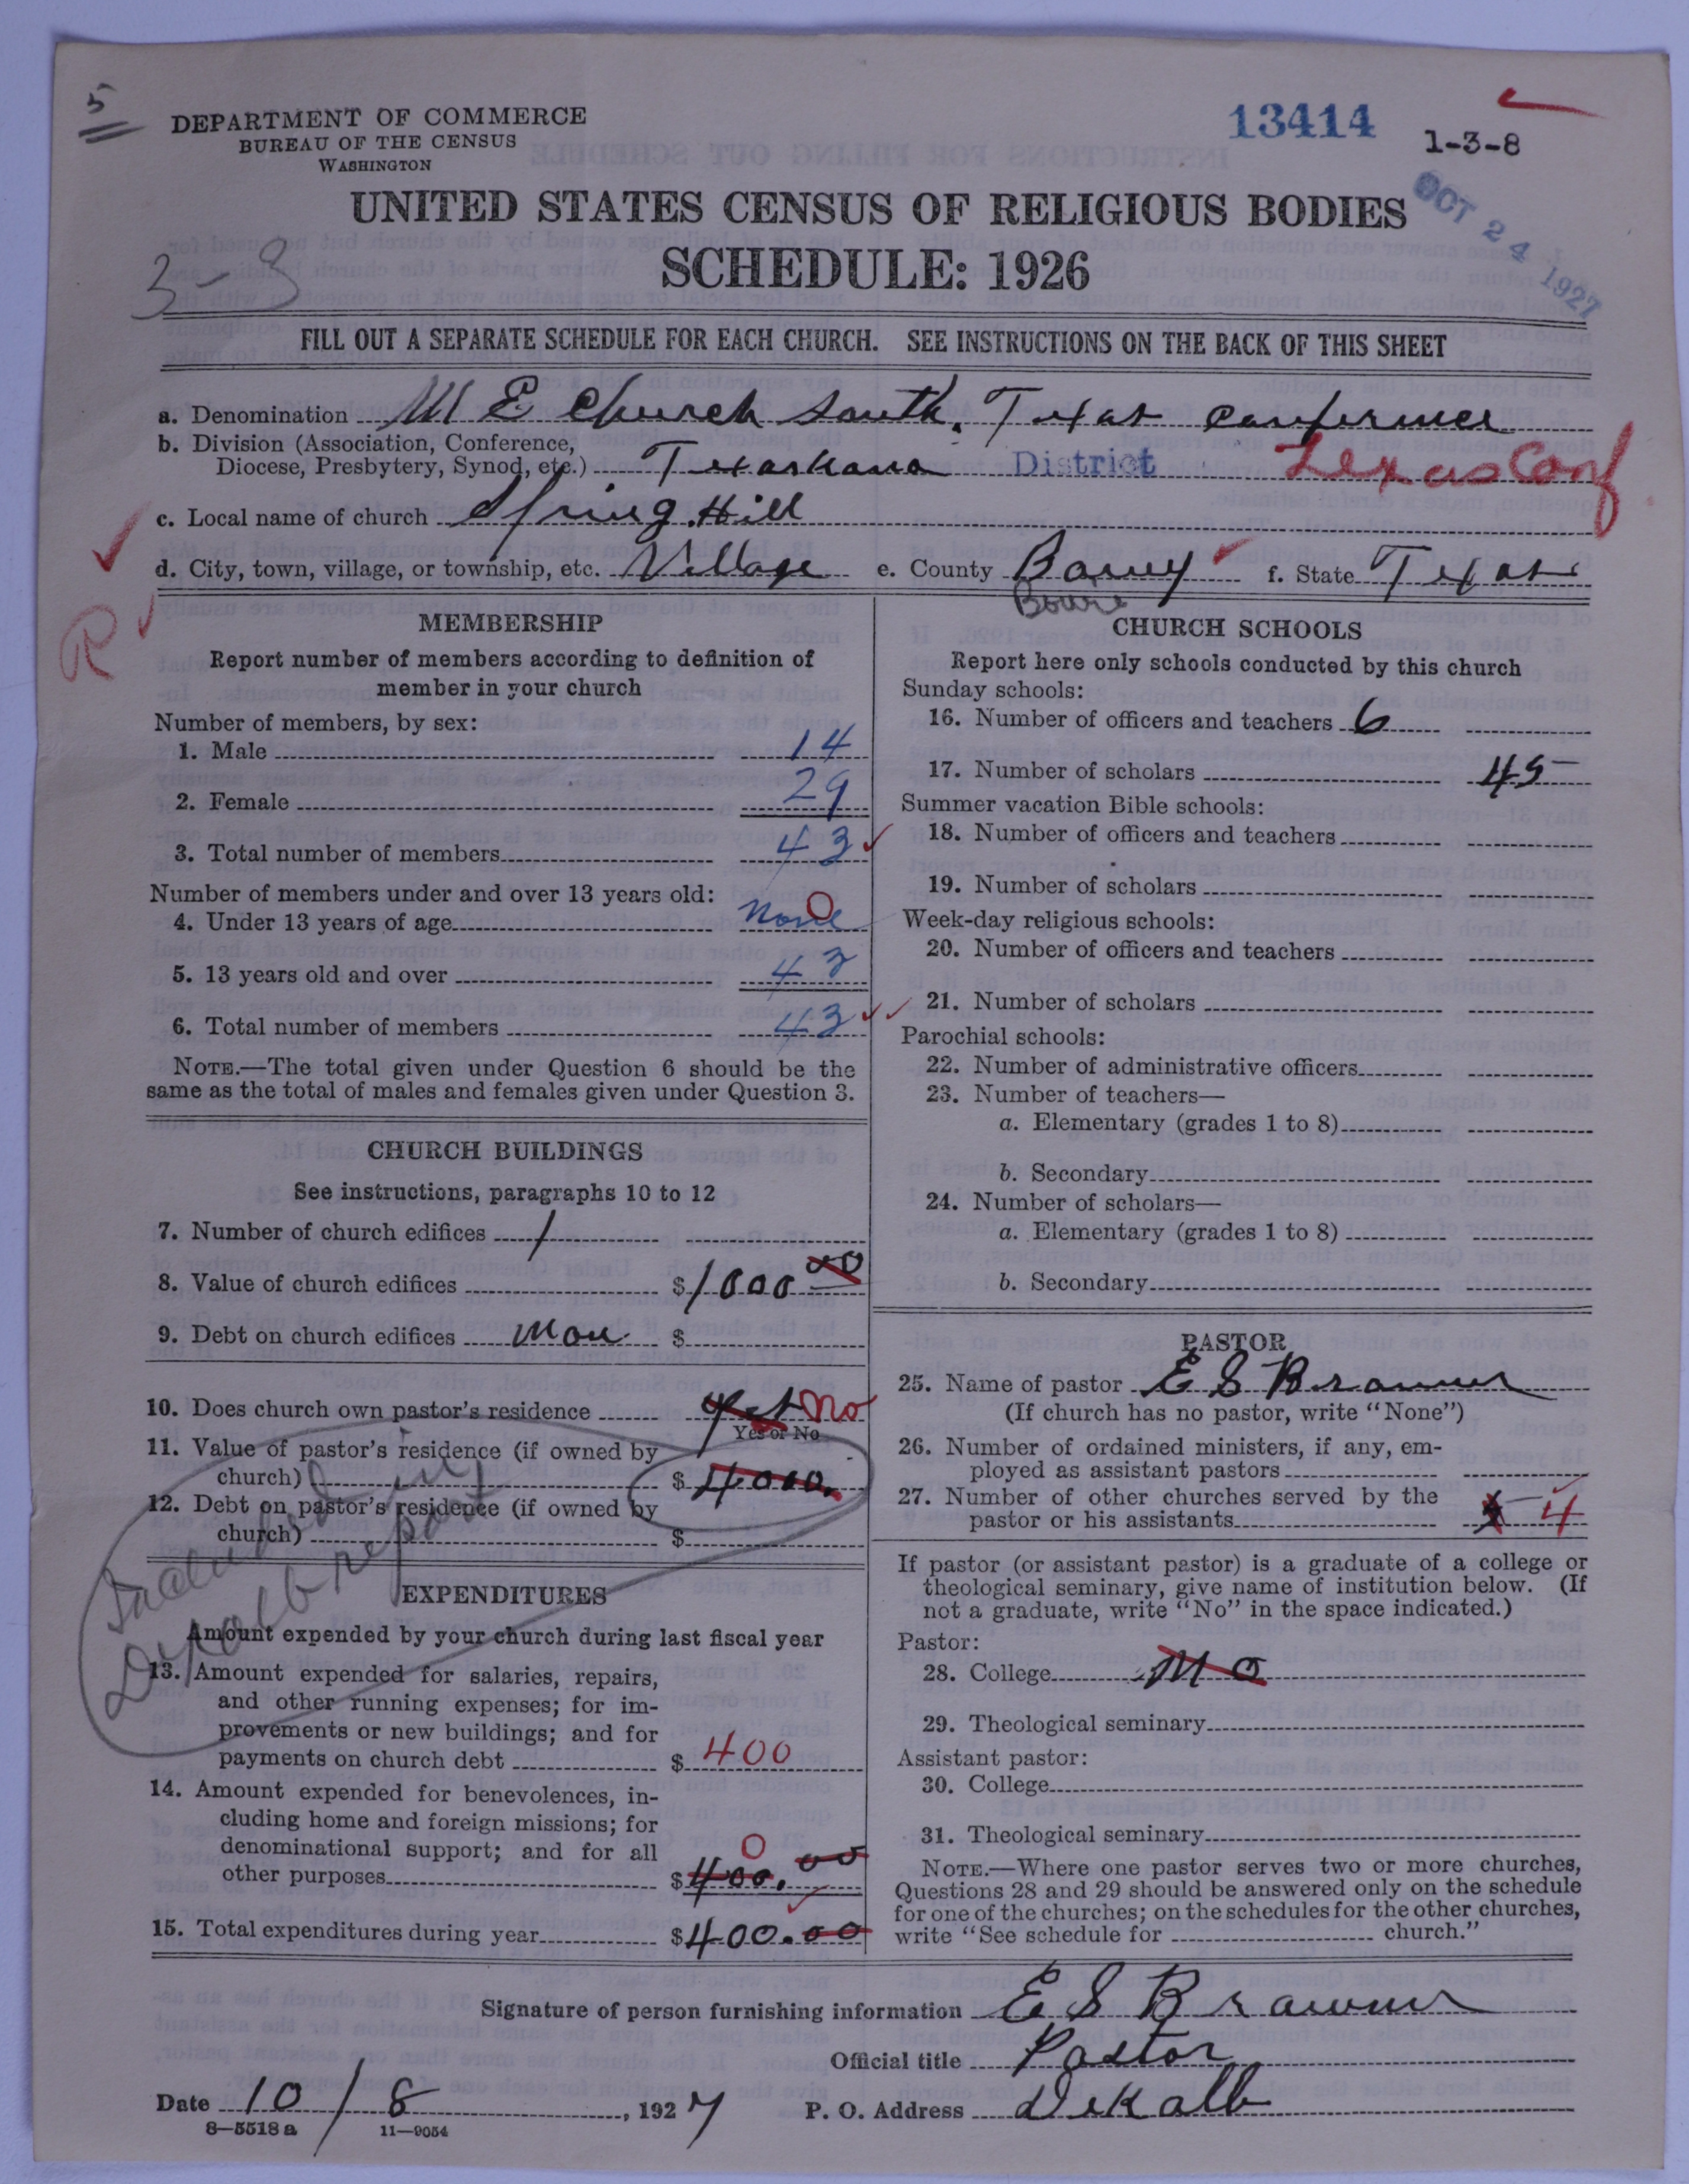 5
DEPARTMENT OF COMMERCE
BUREAU OF THE CENSUS
WASHINGTON
13414
1-3-8
OCT 24 1927
UNITED STATES CENSUS OF RELIGIOUS BODIES
SCHEDULE: 1926
3-8
FILL OUT A SEPARATE SCHEDULE FOR EACH CHURCH. SEE INSTRUCTIONS ON THE BACK OF THIS SHEET
a. Denomination M E Church South. Texas Conference
b. Division (Association, Conference,
Diocese, Presbytery, Synod, etc.) Texarkana District Texas Conf
c. Local name of church Spring Hill
d. City, town, village, or township, etc. Village e. County Bowy f. State Texas
Bowie
R
MEMBERSHIP
Report number of members according to definition of
member in your church
Number of members, by sex:
1. Male 14
2. Female 29
3. Total number of members 43
Number of members under and over 13 years old:
4. Under 13 years of age none 0
5. 13 years old and over 43
6. Total number of members 43
NOTE.—The total given under Question 6 should be the
same as the total of males and females given under Question 3.
CHURCH BUILDINGS
See instructions, paragraphs 10 to 12
7. Number of church edifices 1
8. Value of church edifices $1000 00
9. Debt on church edifices $
10. Does church own pastor's residence Yes No
Yes or No
11. Value of pastor's residence (if owned by
church) $ 4000.
12. Debt on pastor's residence (if owned by
church) $
Included in
DeKalb report
EXPENDITURES
Amount expended by your church during last fiscal year
13. Amount expended for salaries, repairs,
and other running expenses; for im-
provements or new buildings; and for
payments on church debt $ 400
14. Amount expended for benevolences, in-
cluding home and foreign missions; for
denominational support; and for all
other purposes $400.00 0
15. Total expenditures during year $400.00
CHURCH SCHOOLS
Report here only schools conducted by this church
Sunday schools:
16. Number of officers and teachers 6
17. Number of scholars 45
Summer vacation Bible schools:
18. Number of officers and teachers
19. Number of scholars
Week-day religious schools:
20. Number of officers and teachers
21. Number of scholars
Parochial schools:
22. Number of administrative officers
23. Number of teachers—
a. Elementary (grades 1 to 8)
b. Secondary
24. Number of scholars—
a. Elementary (grades 1 to 8)
b. Secondary
PASTOR
25. Name of pastor E S
(If church has no pastor, write "None")
26. Number of ordained ministers, if any, em-
ployed as assistant pastors
27. Number of other churches served by the
pastor or his assistants 4
If pastor (or assistant pastor) is a graduate of a college or
theological seminary, give name of institution below. (If
not a graduate, write "No" in the space indicated.)
Pastor:
28. College No
29. Theological seminary
Assistant pastor:
30. College
31. Theological seminary
NOTE.—Where one pastor serves two or more churches,
Questions 28 and 29 should be answered only on the schedule
for one of the churches; on the schedules for the other churches,
write "See schedule for church."
Signature of person furnishing information E S
Official title Pastor
Date 10/8, 1927 P. O. Address DeKalb
8—5518 a 11—9054